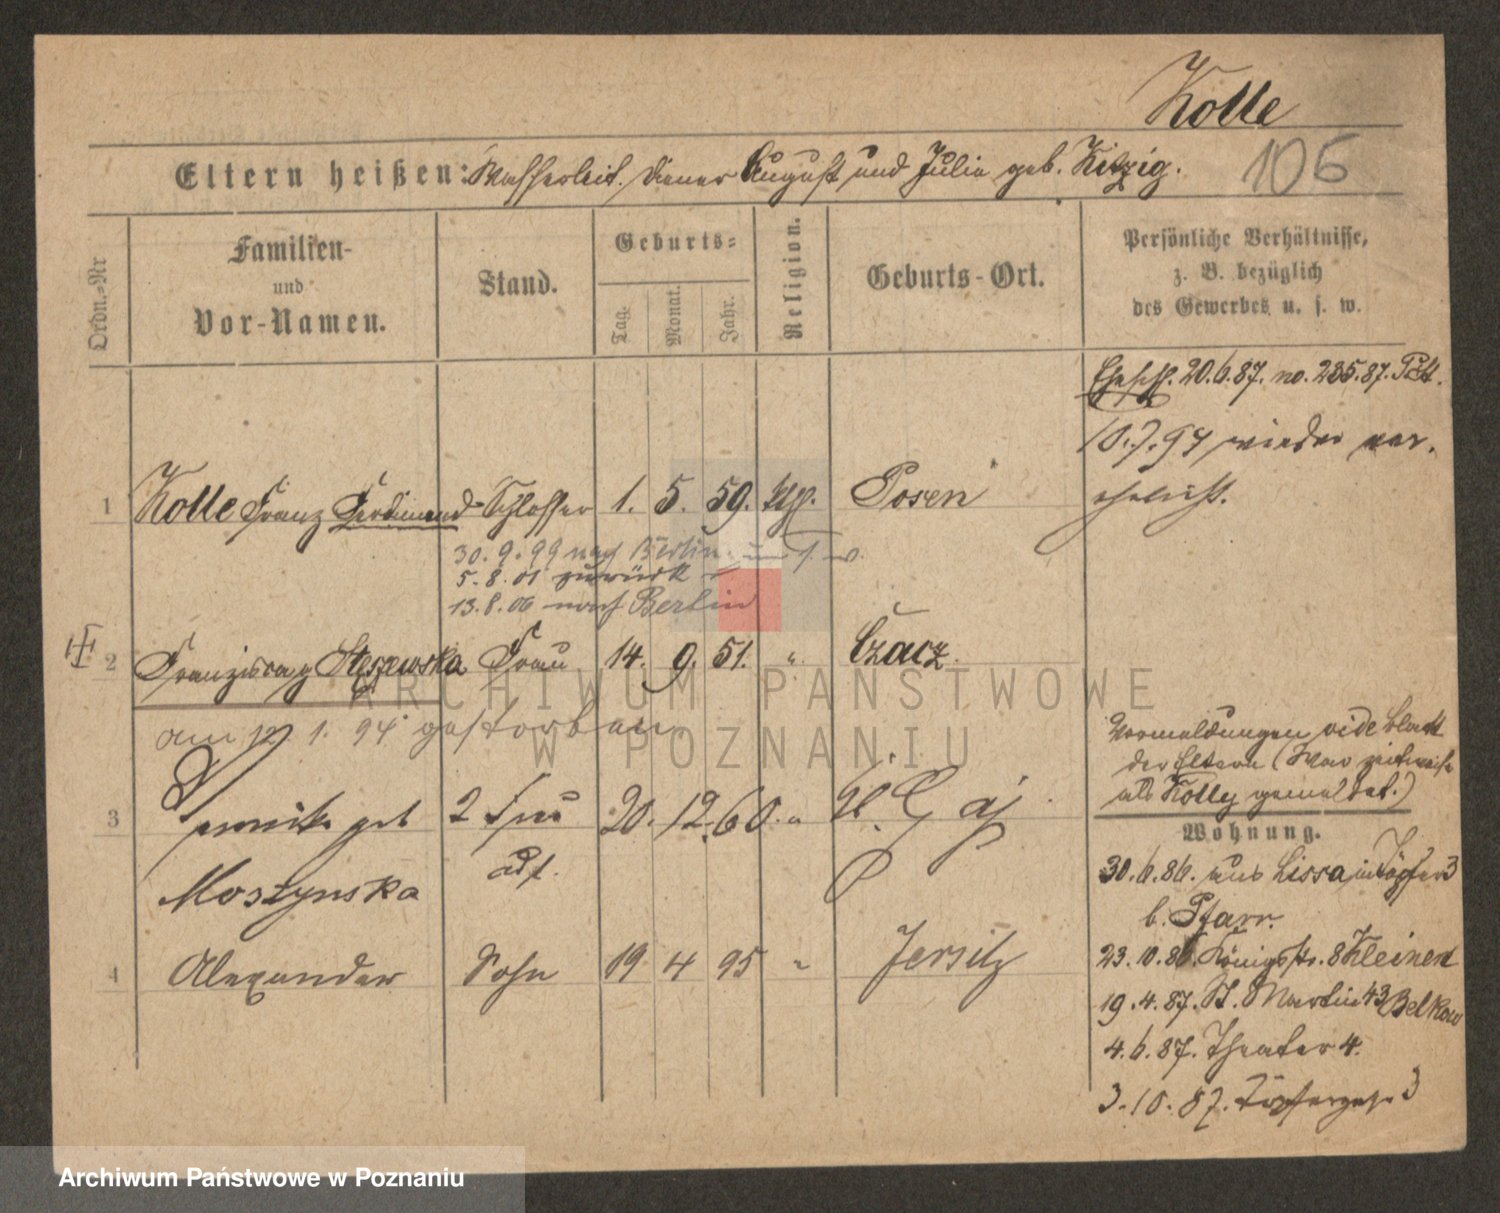 Kolle
106
Eltern heißen: Wasserleit. Diener August und Julie geb. Kitzig.
Ordn.-Nr
Familien- und Vor-Namen.
Stand.
Geburts-
Tag.
Monat.
Jahr.
Religion.
Geburts-Ort.
Persönliche Verhältnisse,
z. B. bezüglich
des Gewerbes u. s. w.
Eheschl. 20.6.87. no. 235.87. 
10.7.94 wieder ver-
ehelicht.
1 Kolle Franz Ferdinand Schlosser 1. 5. 59. kth. Posen
30.9.99 nach Berlin u. s. w.
5.8.01 zurück
13.8.06 nach Berlin
2 Franziska g Stęszewska Frau 14. 9. 51. " Czacz.
am 1. 94 gestorben
Vormeldungen vide Blatt
der Eltern (War zeitweise
als Kolly gemeldet.)
3 geb 2 Frau 20. 12. 60. " Gaj
Moszynska
Wohnung.
30.6.86. aus Lissa in Töpfer 3
b. Pfarr.
4 Alexander Sohn 19 4 95 " Jersitz
23.10.86. Königsstr. 8 Kleinert
19.4.87. St. Martin 43 Belkow
4.6.87. Theater 4.
3.10.87. Töpfergasse 3
ARCHIWUM PAŃSTWOWE
W POZNANIU
Archiwum Państwowe w Poznaniu